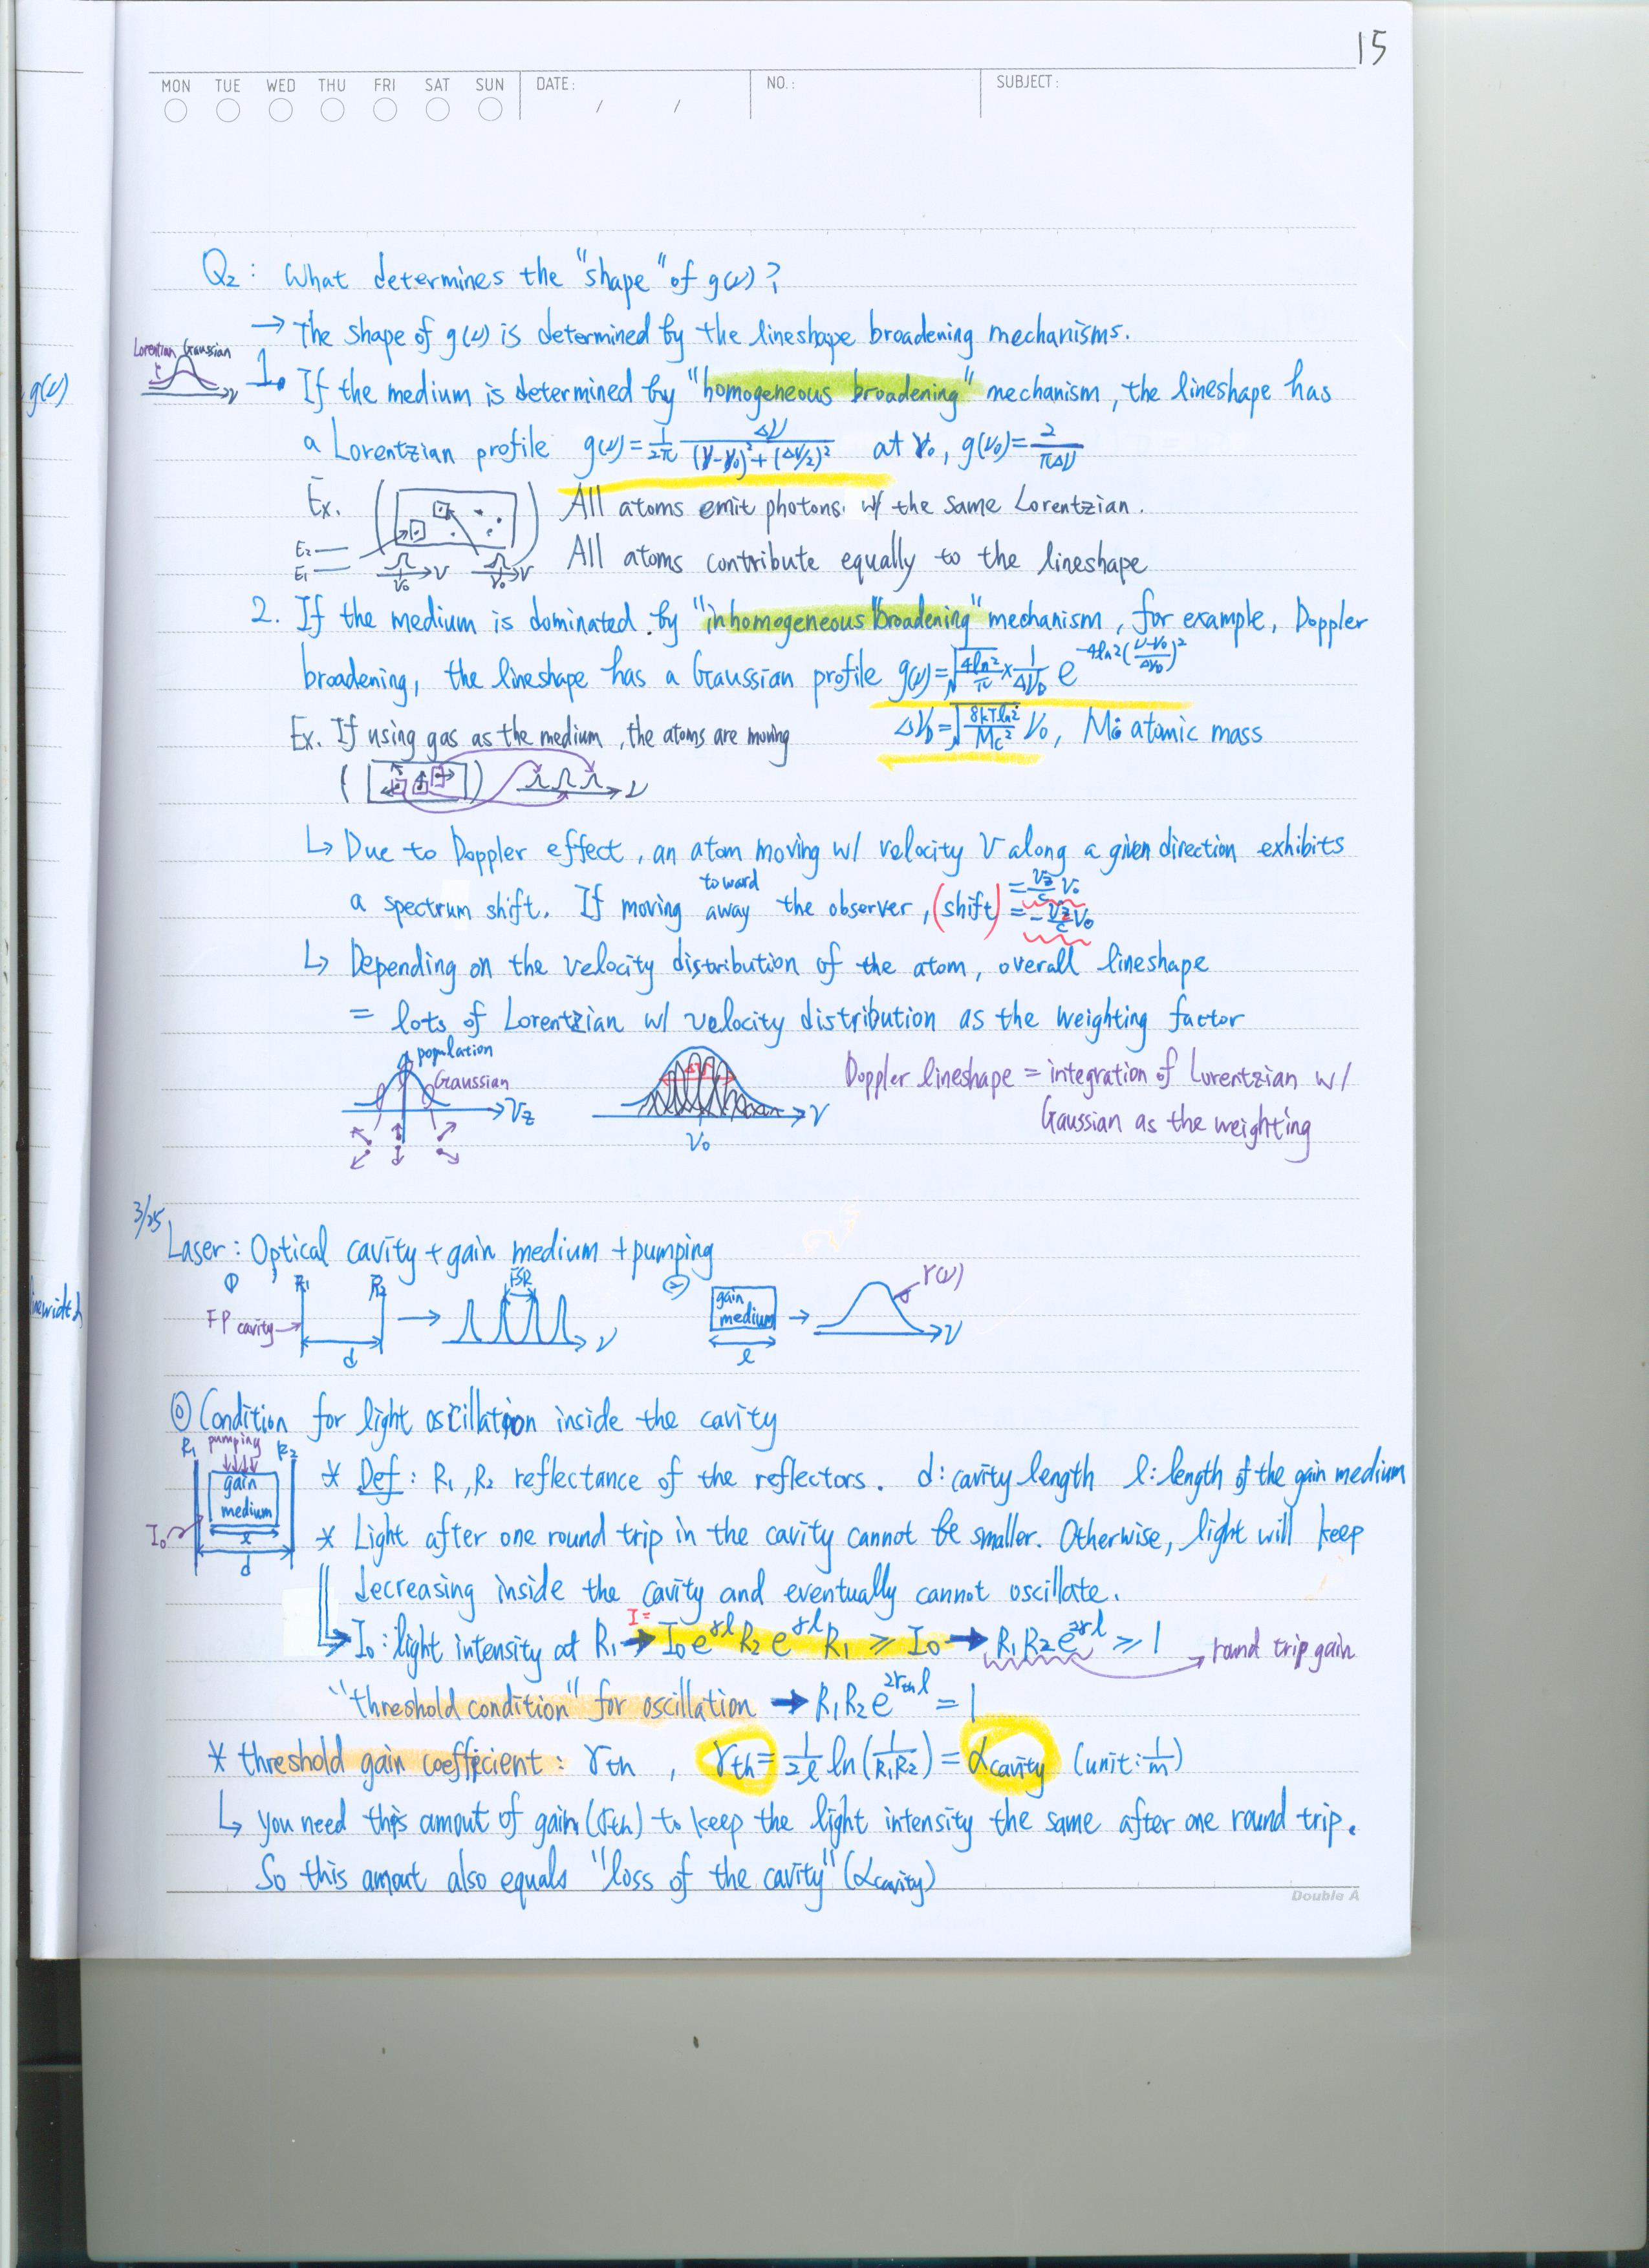 15
MON TUE WED THU FRI SAT SUN DATE: / / NO.: SUBJECT:
Q2: What determines the "shape" of g(ν)?
→ The shape of g(ν) is determined by the lineshape broadening mechanisms.
Lorentzian Gaussian
ν
g(ν)
1. If the medium is determined by "homogeneous broadening" mechanism, the lineshape has
a Lorentzian profile g(ν)=1/2π Δν/((ν-ν0)²+(Δν/2)²) at ν0, g(ν0)=2/πΔν
Ex. All atoms emit photons w/ the same Lorentzian.
E2
E1 ν0 ν ν0 ν
All atoms contribute equally to the lineshape
2. If the medium is dominated by "inhomogeneous broadening" mechanism, for example, Doppler
broadening, the lineshape has a Gaussian profile g(ν)=√(4ln2/π) × 1/ΔνD e^(-4ln2((ν-ν0)/ΔνD)²)
Ex. If using gas as the medium, the atoms are moving ΔνD=√(8kTln2/Mc²) ν0, M: atomic mass
ν
↳ Due to Doppler effect, an atom moving w/ velocity V along a given direction exhibits
toward
a spectrum shift. If moving away the observer, (shift) = Vz/c ν0
= -Vz/c ν0
↳ Depending on the velocity distribution of the atom, overall lineshape
= lots of Lorentzian w/ velocity distribution as the weighting factor
population
Gaussian
Vz
Δν
ν
ν0
Doppler lineshape = integration of Lorentzian w/
Gaussian as the weighting
3/25
Laser: Optical cavity + gain medium + pumping
① R1 R2 FSR ②
FP cavity → d → ν
gain medium → γ(ν) ν
l
linewidth
◎ Condition for light oscillation inside the cavity
R1 pumping R2
gain
medium
I0
d
* Def: R1, R2 reflectance of the reflectors. d: cavity length l: length of the gain medium
* Light after one round trip in the cavity cannot be smaller. Otherwise, light will keep
decreasing inside the cavity and eventually cannot oscillate.
I=
→ I0: light intensity at R1 → I0 e^γl R2 e^γl R1 ≥ I0 → R1R2e^2γl ≥ 1 → round trip gain
"threshold condition" for oscillation → R1R2e^2γth l = 1
* threshold gain coefficient: γth, γth = 1/2l ln(1/R1R2) = αcavity (unit: 1/m)
↳ you need this amout of gain (γth) to keep the light intensity the same after one round trip.
So this amout also equals "loss of the cavity" (αcavity)
Double A